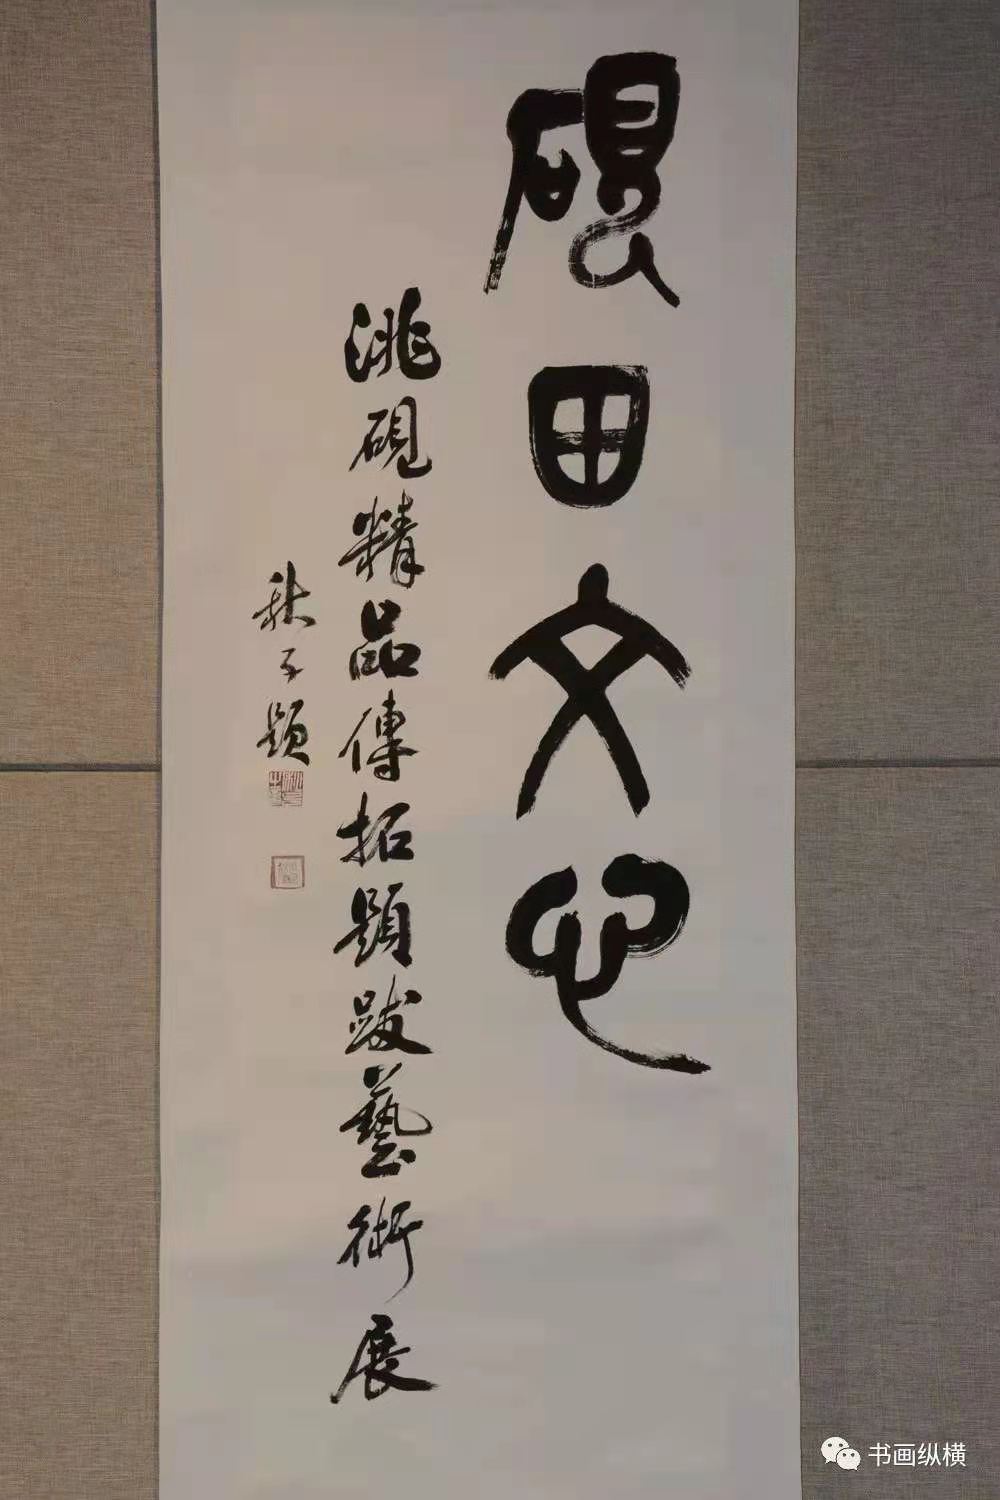 硯田文心
洮硯精品傳拓題跋藝術展
秋子題
书画纵横